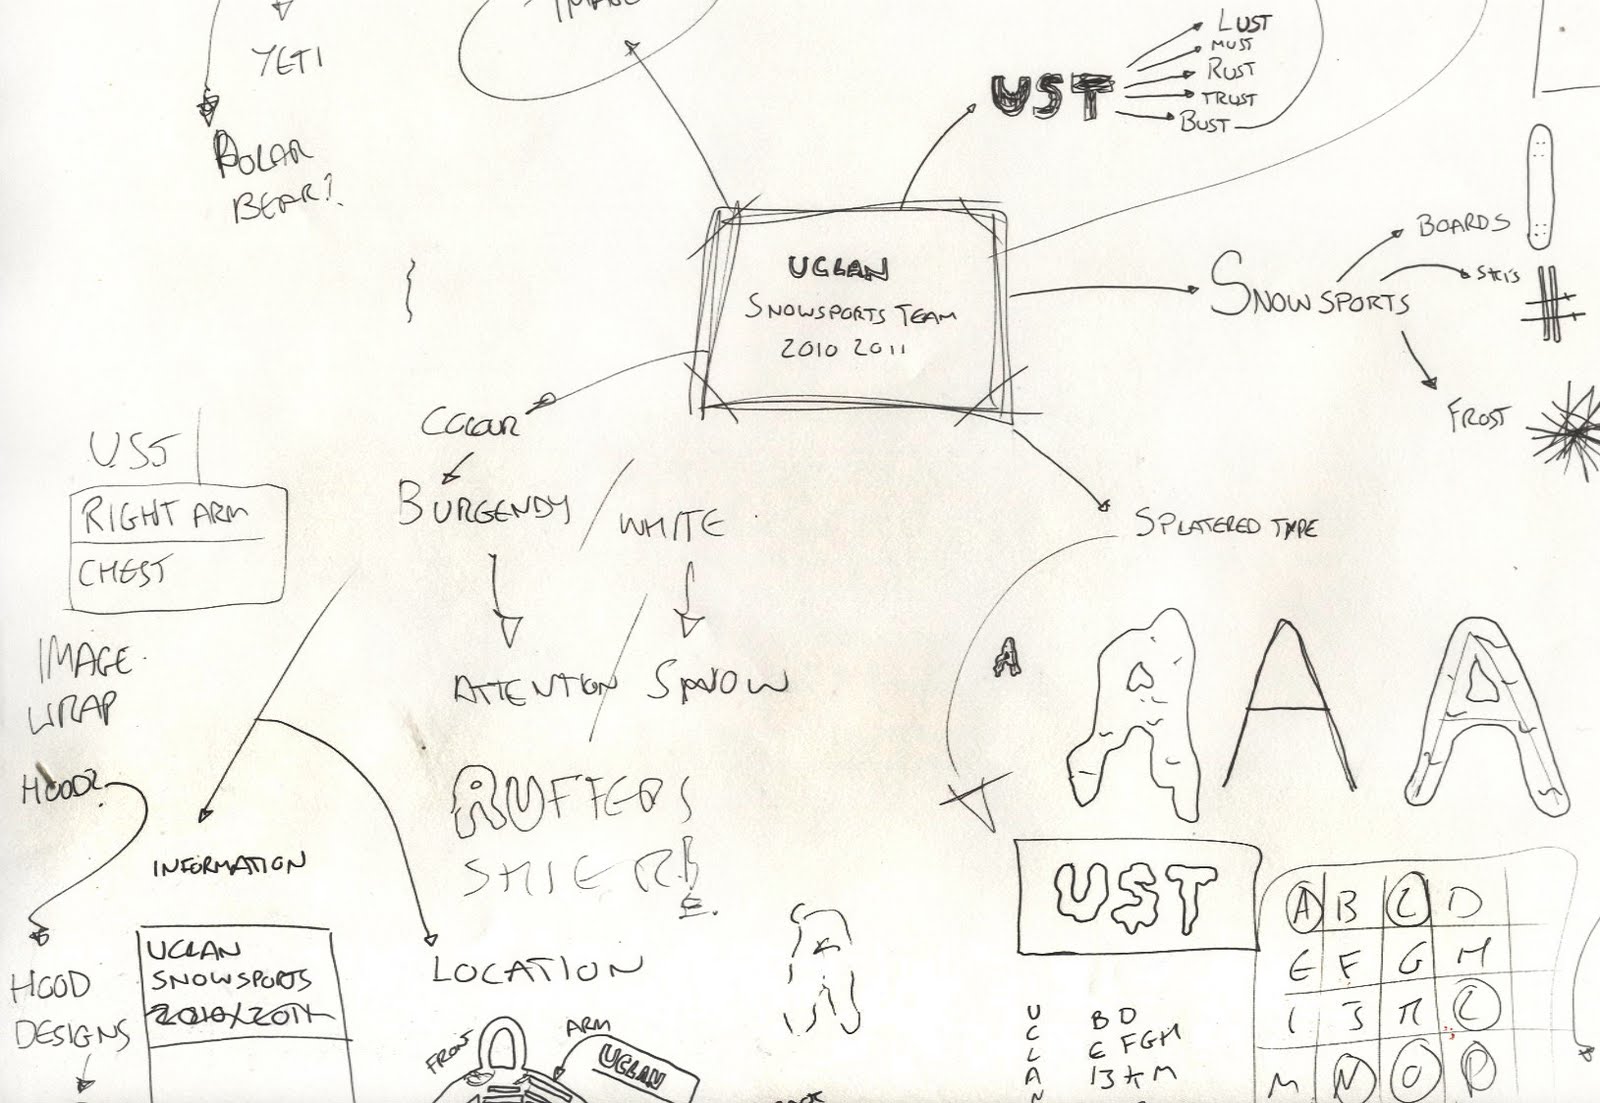 YETI
POLAR
BEAR?
UST
LUST
MUST
RUST
TRUST
BUST
UCLAN
SNOWSPORTS TEAM
2010 2011
SNOWSPORTS
BOARDS
SKIS
FROST
COLOUR
BURGENDY / WHITE
ATTENTION SNOW
SPLATERED TYPE
UST
RIGHT ARM
CHEST
IMAGE
WRAP
HOOD?
HOOD
DESIGNS
INFORMATION
UCLAN
SNOWSPORTS
2010/2011
LOCATION
FRONT
ARM
UCLAN
A
A A A
UST
A B C D
E F G H
I J K L
M N O P
U
C
L
A
N
B D
E FGH